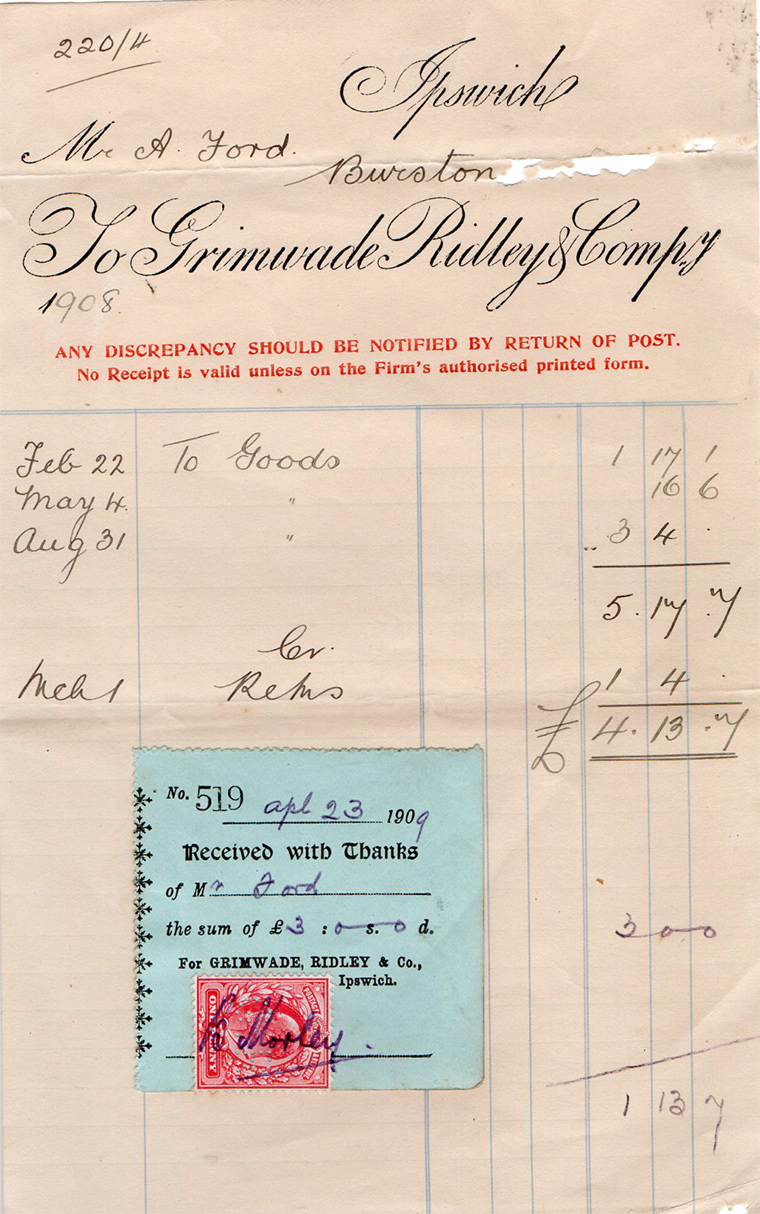 220/4
Ipswich
Mr A. Ford.
Burston
To Grimwade Ridley & Compy
1908.
ANY DISCREPANCY SHOULD BE NOTIFIED BY RETURN OF POST.
No Receipt is valid unless on the Firm's authorised printed form.
Feb 22 To Goods 1 17 1
May 4. " 16 6
Aug 31 " 3 4 .
5. 17 . 7
Cr.
Mch 1 Retns 1 4 .
£ 4. 13 . 7
No. 519 apl 23 1909
Received with Thanks
of Mr Ford
the sum of £3 : 0 s. 0 d.
3 0 0
For GRIMWADE, RIDLEY & Co.,
Ipswich.
Morley.
1 13 7